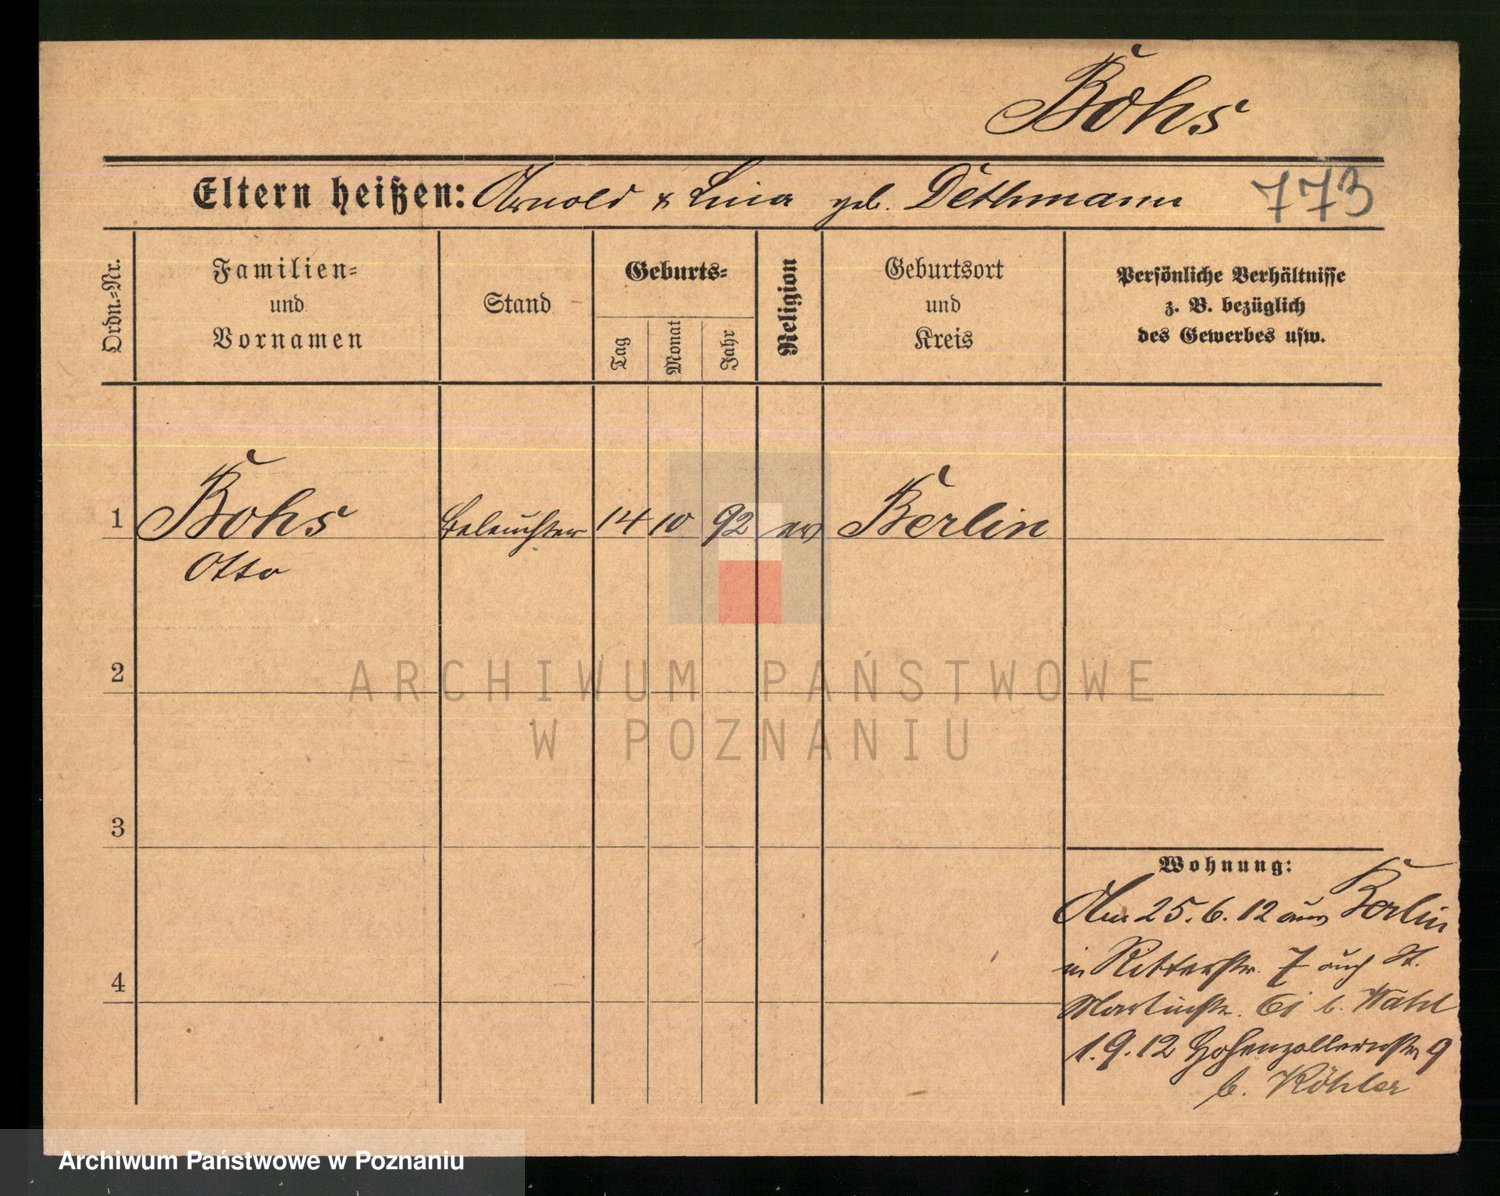 Bohs
Eltern heißen: Arnold & Lina geb. Dethmann 773
Ordn.-Nr.
Familien-
und
Vornamen
Stand
Geburts-
Tag
Monat
Jahr
Religion
Geburtsort
und
Kreis
Persönliche Verhältnisse
z. B. bezüglich
des Gewerbes usw.
1 Bohs Beleuchter 14 10 92 ev Berlin
Otto
2
3
4
Wohnung:
Am 25. 6. 12 aus Berlin
in Ritterstr. 7 auch St.
Martinstr. b. Wahl
1. 9. 12 Hohenzollernstr 9
b. Köhler
ARCHIWUM PAŃSTWOWE
W POZNANIU
Archiwum Państwowe w Poznaniu